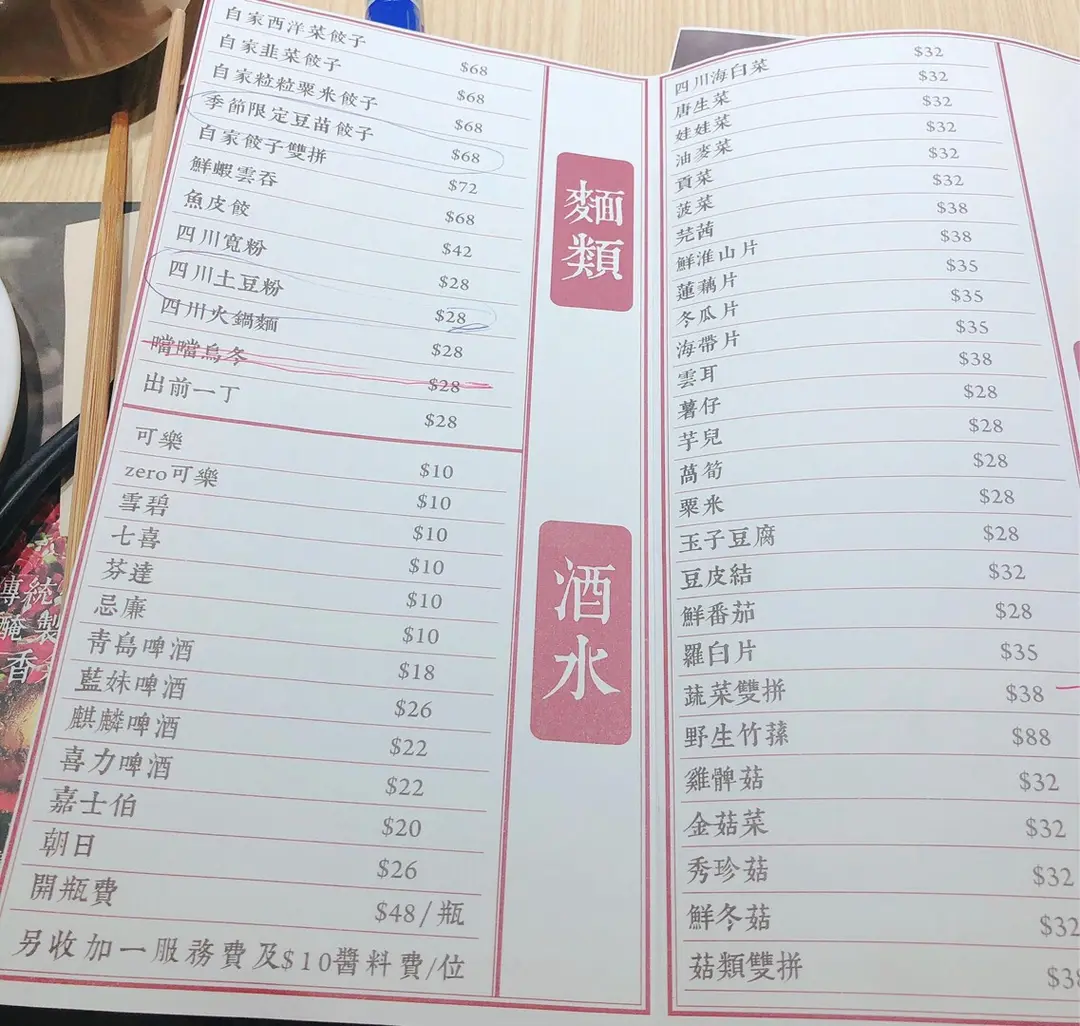 自家西洋菜餃子 $68
自家韭菜餃子 $68
自家粒粒粟米餃子 $68
季節限定豆苗餃子 $68
自家餃子雙拼 $72
鮮蝦雲吞 $68
魚皮餃 $42
四川寬粉 $28
四川土豆粉 $28
四川火鍋麵 $28
噹噹烏冬 $28
出前一丁 $28
麵類
可樂 $10
zero可樂 $10
雪碧 $10
七喜 $10
芬達 $10
忌廉 $10
青島啤酒 $18
藍妹啤酒 $26
麒麟啤酒 $22
喜力啤酒 $22
嘉士伯 $20
朝日 $26
開瓶費 $48/瓶
酒水
另收加一服務費及$10醬料費/位
四川海白菜 $32
唐生菜 $32
娃娃菜 $32
油麥菜 $32
貢菜 $32
菠菜 $32
芫茜 $38
鮮淮山片 $38
蓮藕片 $35
冬瓜片 $35
海帶片 $35
雲耳 $38
薯仔 $28
芋兒 $28
萵筍 $28
粟米 $28
玉子豆腐 $28
豆皮結 $32
鮮番茄 $28
羅白片 $35
蔬菜雙拼 $38
野生竹蓀 $88
雞髀菇 $32
金菇菜 $32
秀珍菇 $32
鮮冬菇 $32
菇類雙拼 $38
傳統
醃製
香